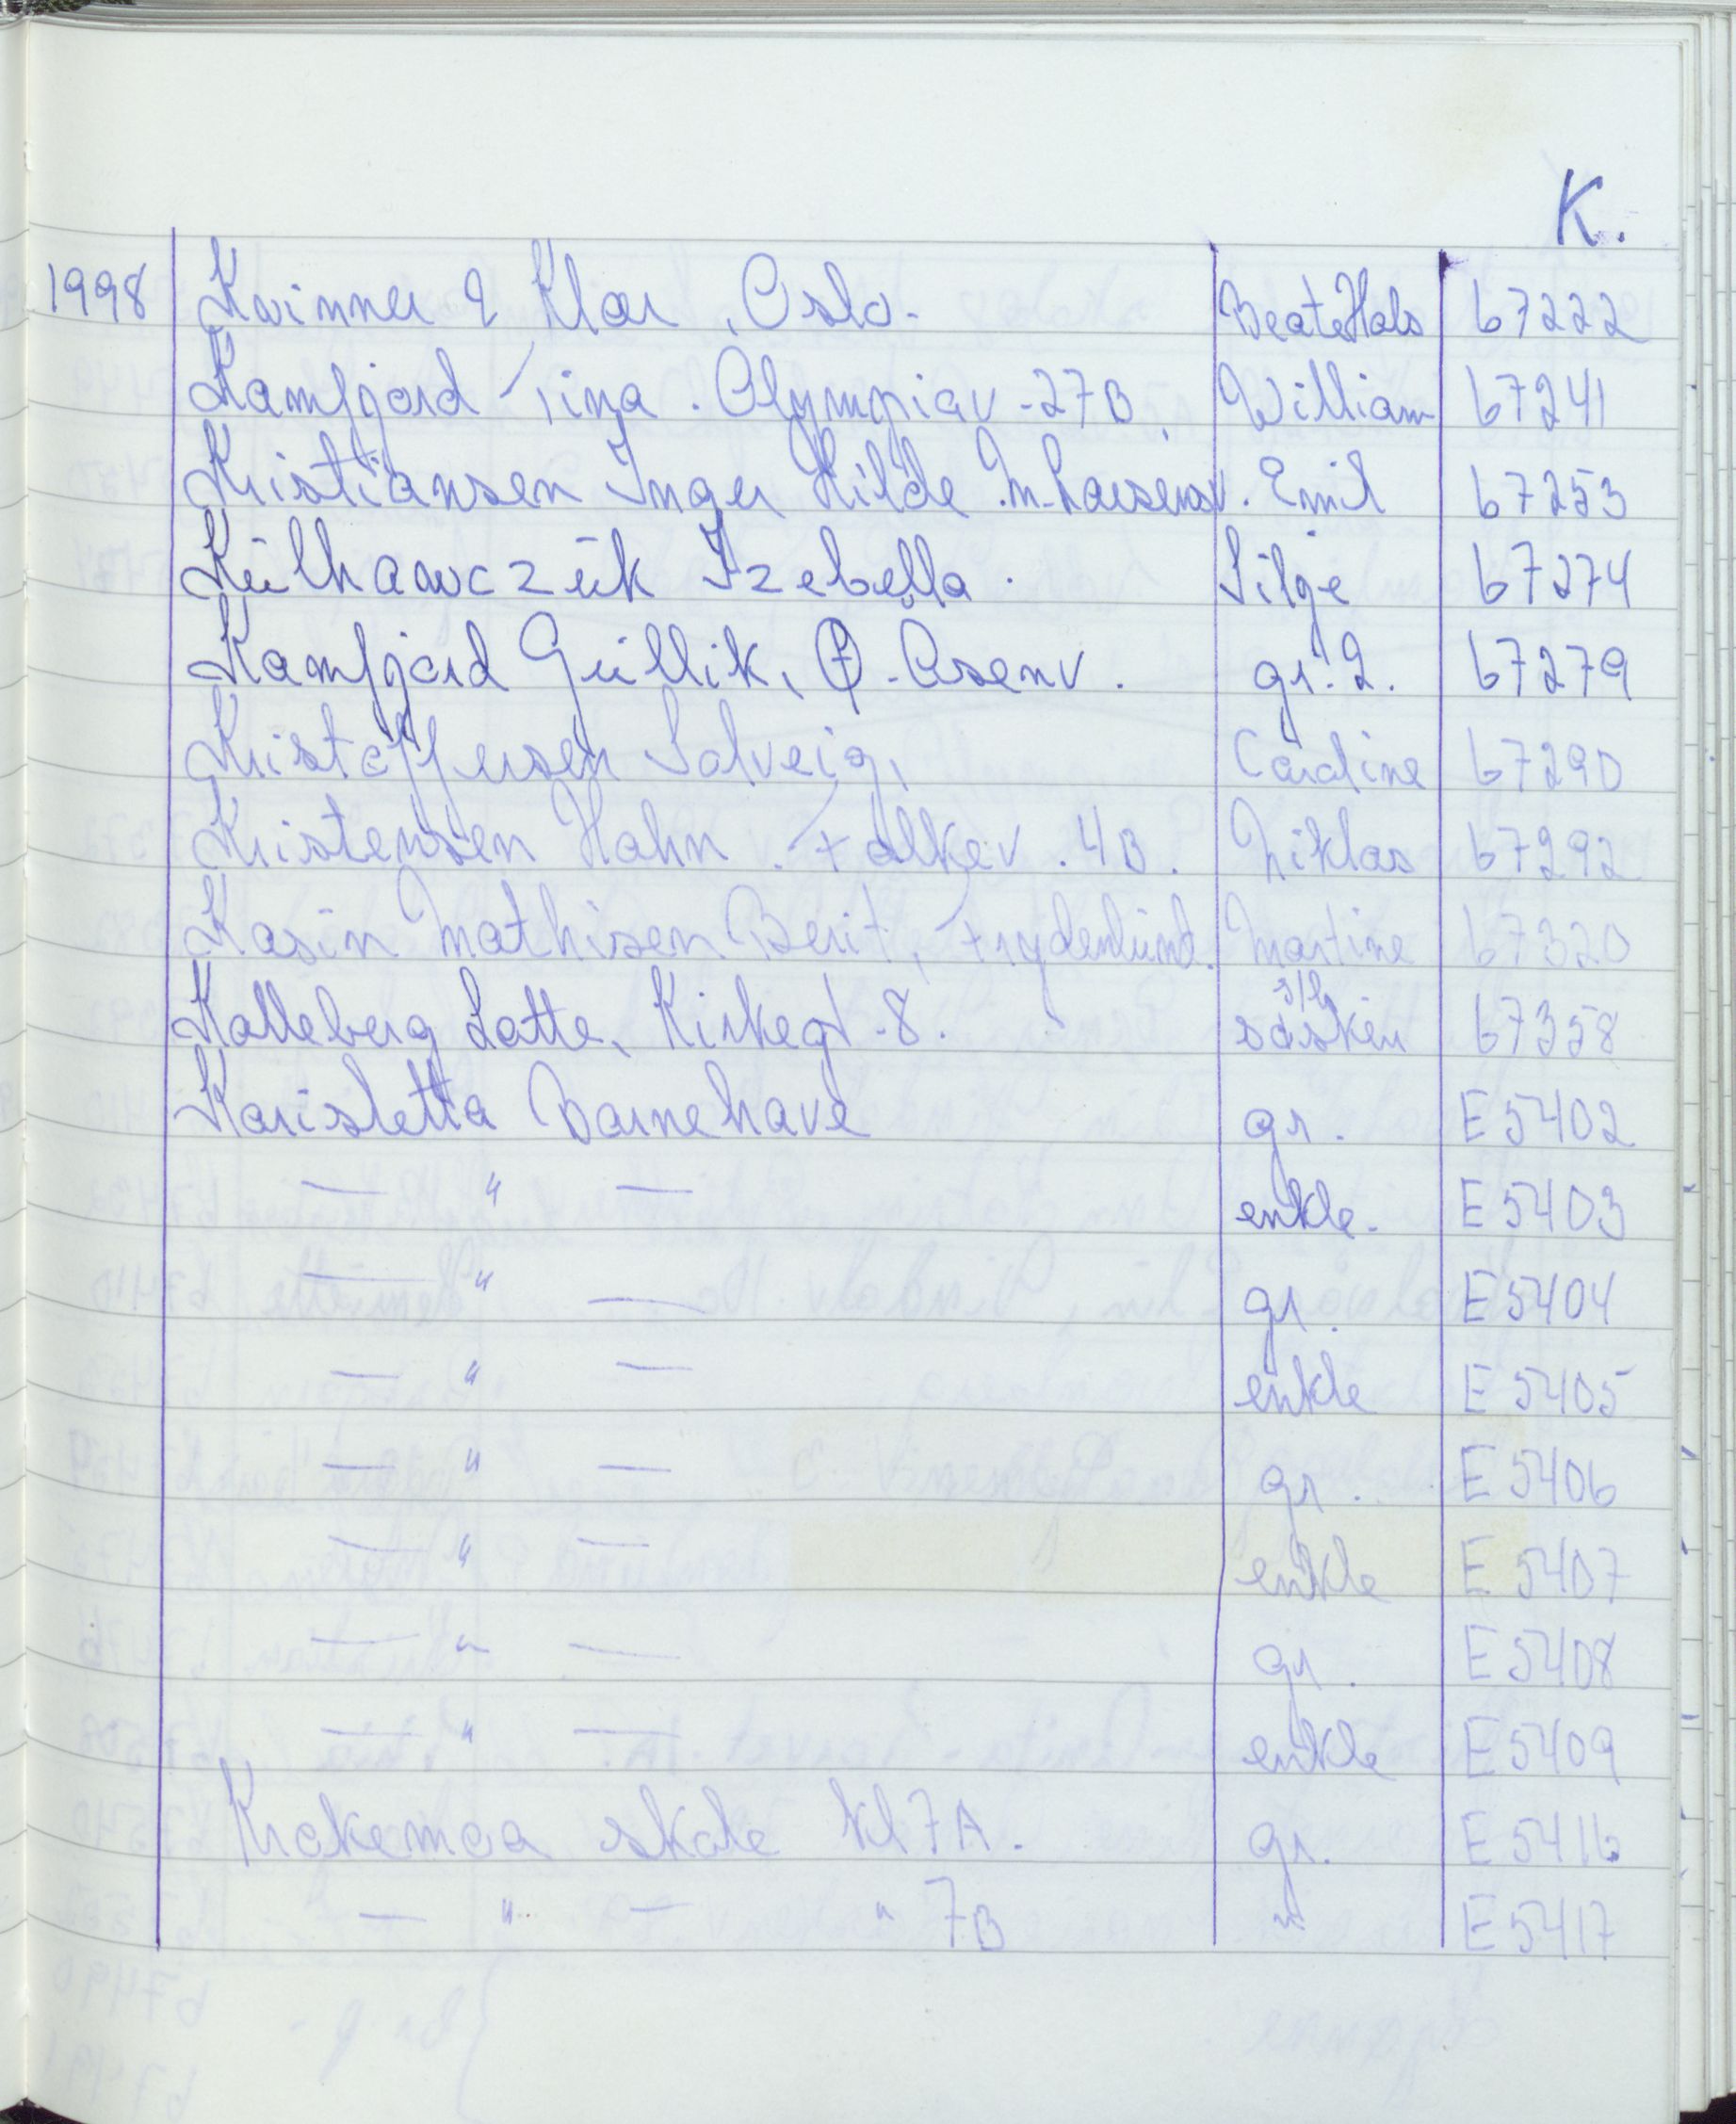 K.
1998 Kvinner & Klær, Oslo. Beate Hals 67222
Kamfjord Tina. Olympiav. 27B. William 67241
Kristiansen Inger Hilde M. Larsensv. Emil 67253
Külhawczük Izebella. Silje 67274
Kamfjord Gullik, Ø. Åsenv. gr. 2. 67279
Kristoffersen Solveig, Caroline 67290
Kristensen Hahn. Falkev. 4B. Niklas 67292
Kasin Mathisen Berit, Frydenlund. Martine 67320
Kalleberg Lotte, Kirkegt. 8. s/h søsken 67358
Karisletta Barnehave gr. E 5402
— " — enkle. E 5403
— " — gr. E 5404
— " — enkle E 5405
— " — gr. E 5406
— " — enkle E 5407
— " — gr. E 5408
— " — enkle E 5409
Krokemoa skole kl 7A. gr. E 5416
— " — " 7B " E 5417